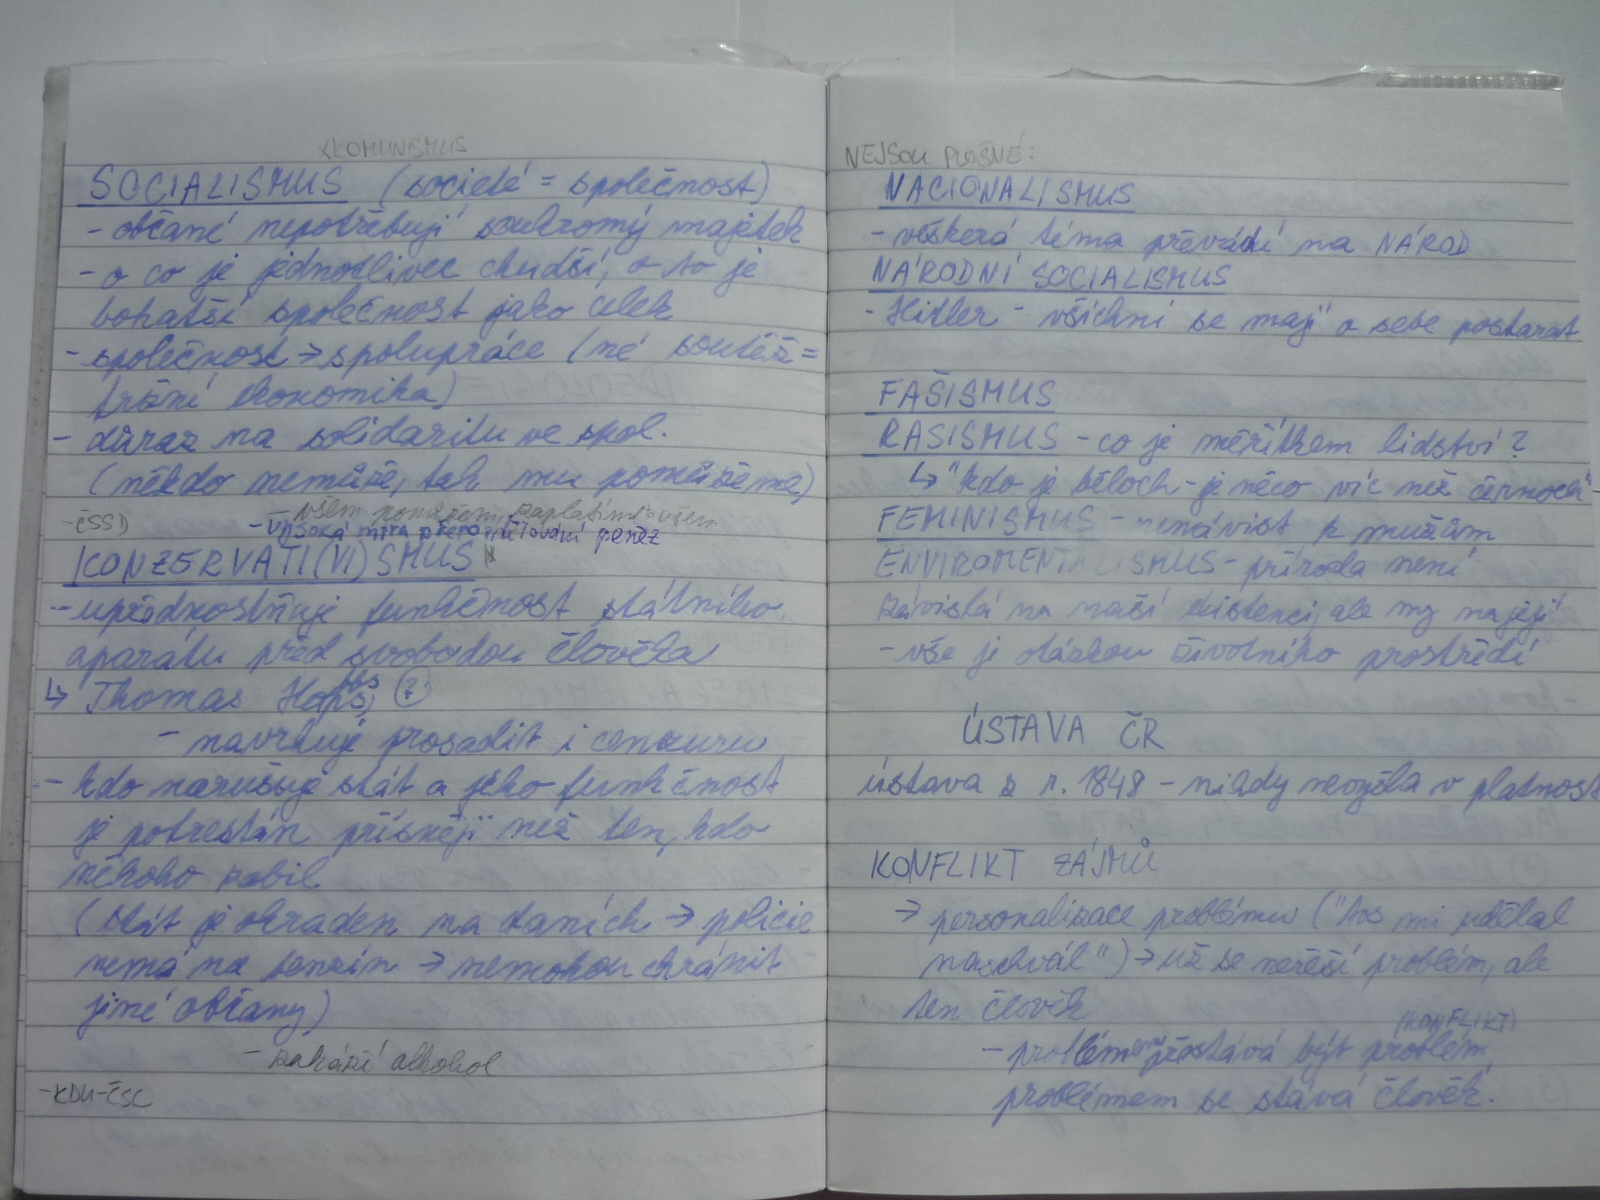 xKOMUNISMUS
SOCIALISMUS (societé = společnost)
- občané nepotřebují soukromý majetek
- o co je jednotlivec chudší, o to je
bohatší společnost jako celek
- společnost → spolupráce (né soutěž =
tržní ekonomika)
- důraz na solidaritu ve spol.
(někdo nemůže, tak mu pomůžeme)
- všem pomůžem, zaplatíme všem
- ČSSD
- vysoká míra přerozdělování peněz
KONZERVATI(VI)SMUS
- upřednostňuje funkčnost státního
aparátu před svobodou člověka
↳ Thomas Hobbs (?)
- navrhuje prosadit i cenzuru
- kdo narušuje stát a jeho funkčnost
je potrestán přísněji než ten, kdo
někoho zabil
(stát je okraden na daních → policie
nemá na benzín → nemohou chránit
jiné občany)
- zakáží alkohol
- KDU-ČSL
NEJSOU PLOŠNÉ:
NACIONALISMUS
- veškerá téma převádí na NÁROD
NÁRODNÍ SOCIALISMUS
- Hitler - všichni se mají o sebe postarat
FAŠISMUS
RASISMUS - co je měřítkem lidství?
↳ "kdo je běloch - je něco víc než černoch"
FEMINISMUS - nenávist k mužům
ENVIROMENTALISMUS - příroda není
závislá na naší existenci, ale my na její
- vše je otázkou životního prostředí
ÚSTAVA ČR
ústava z r. 1848 - nikdy nevyšla v platnost
KONFLIKT ZÁJMŮ
→ personalizace problému ("tos mi udělal
naschvál") → už se neřeší problém, ale
ten člověk
(KONFLIKT)
- problémem přestává být problém,
problémem se stává člověk.